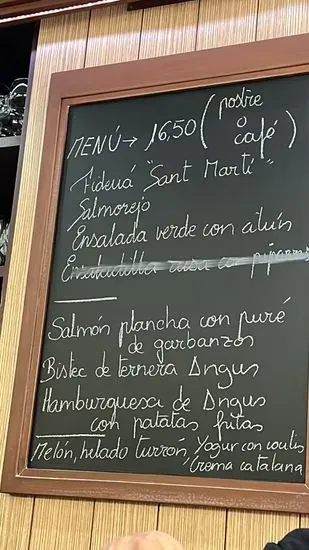 MENÚ → 16,50 (postre
o
café)
Fideuá "Sant Martí"
Salmorejo
Ensalada verde con atún
Ensaladilla rusa con piparras
Salmón plancha con puré
de garbanzos
Bistec de ternera Angus
Hamburguesa de Angus
con patatas fritas
Melón, helado turrón, Yogur con coulis
Crema catalana